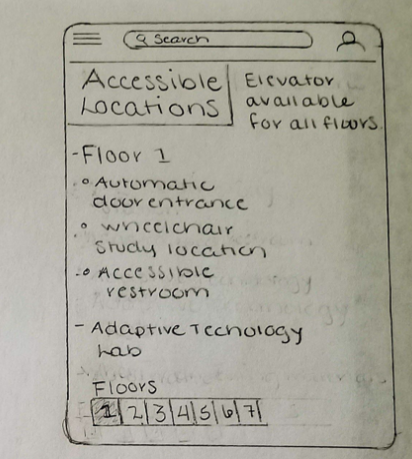 Search
Accessible
Locations
Elevator
available
for all floors.
- Floor 1
• Automatic
door entrance
• wheelchair
study location
• Accessible
restroom
- Adaptive Technology
Lab
Floors
1 2 3 4 5 6 7